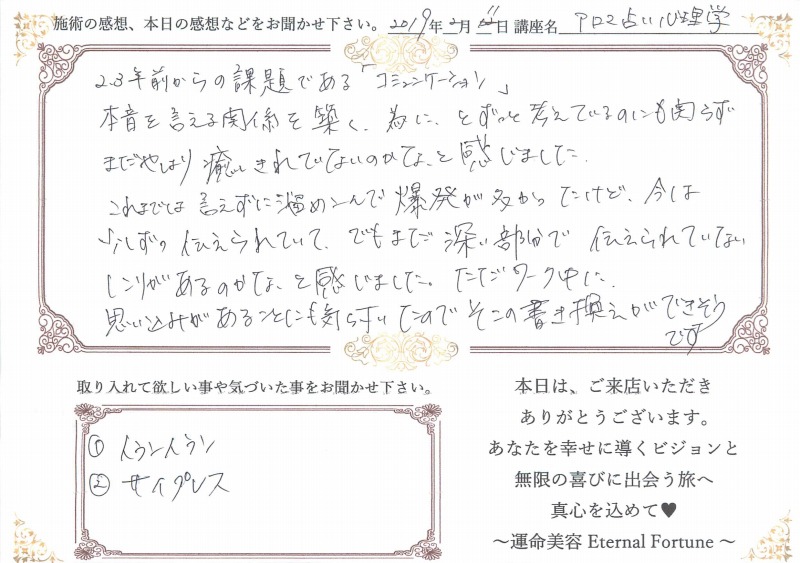 施術の感想、本日の感想などをお聞かせ下さい。 2019年 月 日 講座名 アロマ占い心理学
2.3年前からの課題である「コミュニケーション」
本音を言える関係を築く、為に、とずっと考えているのにも関らず
まだやはり癒しきれていないのかな、と感じました。
これまでは言えずに溜めこんで爆発が多かったけど、今は
少しずつ伝えられていて、でもまだ深い部分で伝えられていない
しこりがあるのかな、と感じました。ただワーク中に、
思い込みがあることにも気らずいたのでそこの書き換えができそう
です
取り入れて欲しい事や気づいた事をお聞かせ下さい。
① イランイラン
② サイプレス
本日は、ご来店いただき
ありがとうございます。
あなたを幸せに導くビジョンと
無限の喜びに出会う旅へ
真心を込めて♥
～運命美容 Eternal Fortune ～